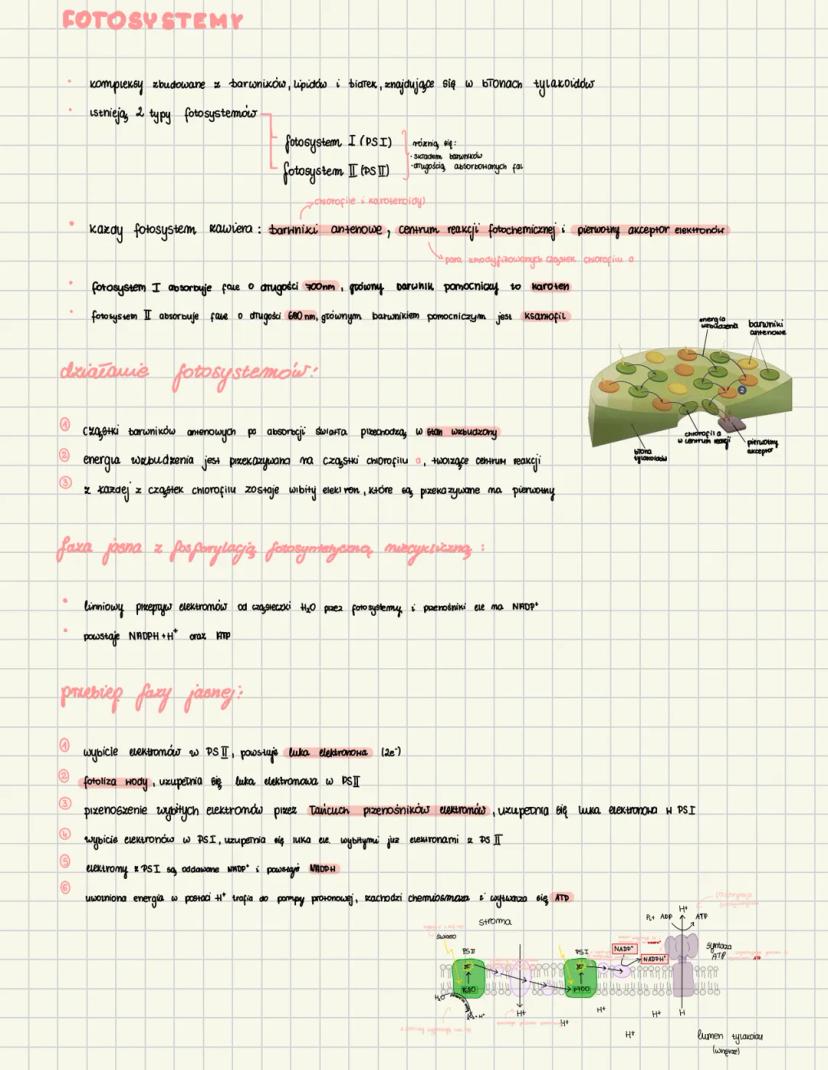 FOTOSYSTEMY
• kompleksy zbudowane z barwników, lipidów i białek, znajdujące się w błonach tylakoidów
• istnieją 2 typy fotosystemów
fotosystem I (PSI)
fotosystem II (PSII)
różnią się:
· składem barwników
· długością absorbowanych fal
chlorofile i karotenoidy)
• każdy fotosystem zawiera: barwniki antenowe, centrum reakcji fotochemicznej i pierwotny akceptor elektronów
para zmodyfikowanych cząstek chlorofilu a
• fotosystem I absorbuje fale o długości 700nm, główny barwnik pomocniczy to karoten
• fotosystem II absorbuje fale o długości 680nm, głównym barwnikiem pomocniczym jest ksantofil
energia wzbudzenia
barwniki antenowe
2
chlorofil a w centrum reakcji
pierwotny akceptor
błona tylakoidów
działanie fotosystemów:
1 cząstki barwników antenowych po absorbcji światła przechodzą w stan wzbudzony
2 energia wzbudzenia jest przekazywana na cząstki chlorofilu a, tworzące centrum reakcji
3 z każdej z cząstek chlorofilu zostaje wybity elektron, które są przekazywane na pierwotny
faza jasna z fosforylacją fotosyntetyczną niecykliczną:
• linniowy przepływ elektronów od cząsteczki H₂O przez fotosystemy i przenośniki ele na NADP⁺
• powstaje NADPH + H⁺ oraz ATP
przebieg fazy jasnej:
1 wybicie elektronów w PSII, powstaje luka elektronowa (2e⁻)
2 fotoliza wody, uzupełnia się luka elektronowa w PSII
3 przenoszenie wybitych elektronów przez łańcuch przenośników elektronów, uzupełnia się luka elektronowa w PSI
4 wybicie elektronów w PSI, uzupełnia się luka ele. wybitymi już elektronami z PSII
5 elektrony z PSI są oddawane NADP⁺ i powstaje NADPH
6 uwolniona energia w postaci H⁺ trafia do pompy protonowej, zachodzi chemiosmoza i wytwarza się ATP
stroma
światło
PSII
PSI
NADP⁺
NADPH⁺
H⁺
Pi + ADP
ATP
syntaza ATP
P680
P700
H₂O
H⁺
H⁺
H⁺
H⁺
H⁺
H⁺
H
lumen tylakoidu
(wnętrze)